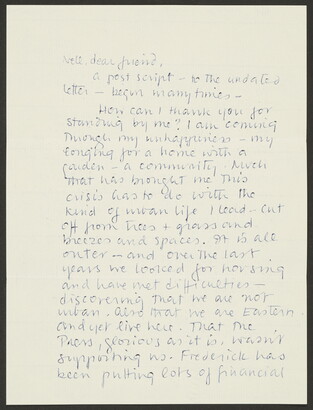 Nell, dear friend,
a post script - to the undated
letter - begun many times -
How can I thank you for
standing by me? I am coming
through my unhappiness - my
longing for a home with a
garden - a community. Much
that has brought me this
crisis has to do with the
kind of urban life I lead - cut
off from trees + grass and
breezes and spaces. It is all
outer - and over the last
years we looked for housing
and have met difficulties -
discovering that we are not
urban. Also that we are Eastern
and yet live here. That the
Press, glorious as it is, wasn't
supporting us. Frederick has
been putting lots of financial